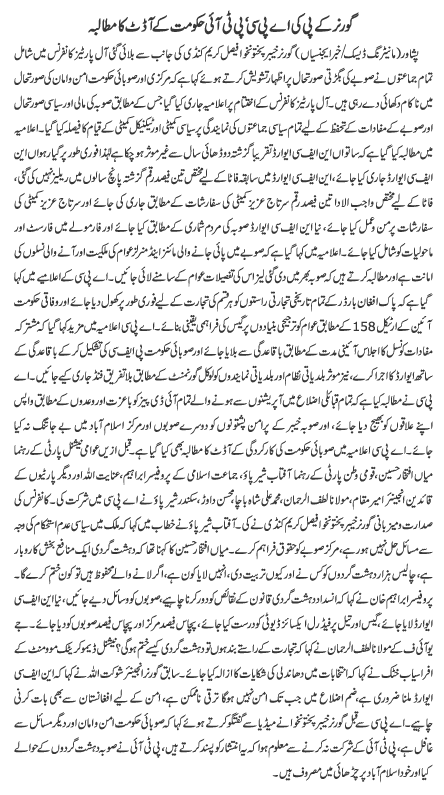 گورنر کے پی کی اے پی سی' پی ٹی آئی حکومت کے آڈٹ کا مطالبہ
پشاور (مانیٹرنگ ڈیسک/خبرایجنسیاں) گورنر خیبر پختونخوا فیصل کریم کنڈی کی جانب سے بلائی گئی آل پارٹیز کانفرنس میں شامل
تمام جماعتوں نے صوبے کی بگڑتی صورتحال پر اظہار تشویش کرتے ہوئے کہا ہے کہ مرکزی اور صوبائی حکومت امن و امان کی صورتحال
میں ناکام دکھائی دے رہی ہیں۔ آل پارٹیز کانفرنس کے اختتام پر اعلامیہ جاری کیا گیا جس کے مطابق صوبہ کی مالی اور سیاسی صورتحال
اور صوبے کے مفادات کے تحفظ کے لیے تمام سیاسی جماعتوں کی نمائندگی پر سیاسی کمیٹی اور ٹیکنیکل کمیٹی کے قیام کا فیصلہ کیا گیا۔ اعلامیہ
میں مطالبہ کیا گیا ہے کہ ساتواں این ایف سی ایوارڈ تقریباً گزشتہ دو ڈھائی سال سے غیر موثر ہو چکا ہے لہٰذا فوری طور پر گیارہواں این
ایف سی ایوارڈ جاری کیا جائے، این ایف سی ایوارڈ میں سابقہ فاٹا کے لیے مختص تین فیصد رقم گزشتہ پانچ سالوں میں ریلیز نہیں کی گئی،
فاٹا کے لیے مختص واجب الادا تین فیصد رقم سرتاج عزیز کمیٹی کی سفارشات کے مطابق جاری کی جائے اور سرتاج عزیز کمیٹی کی
سفارشات پر من و عمل کیا جائے، نیا این ایف سی ایوارڈ صوبہ کی مردم شماری کے مطابق کیا جائے اور فارمولے میں فارسٹ اور
ماحولیات کو شامل کیا جائے۔ اعلامیہ میں کہا گیا ہے کہ صوبے میں پائی جانے والی مائنز اینڈ منرلز عوام کی ملکیت اور آنے والی نسلوں کی
امانت ہے اور مطالبہ کرتے ہیں کہ صوبہ بھر میں دی گئی لیز اس کی تفصیلات عوام کے سامنے لائی جائیں۔ اے پی سی کے اعلامیے میں کہا
گیا ہے کہ پاک افغان بارڈر کے تمام تاریخی تجارتی راستوں کو ہر قسم کی تجارت کے لیے فوری طور پر کھول دیا جائے اور وفاقی حکومت
آئین کے آرٹیکل 158 کے مطابق عوام کو ترجیحی بنیادوں پر گیس کی فراہمی یقینی بنائے۔ اے پی سی اعلامیہ میں مزید کہا گیا کہ مشترکہ
مفادات کونسل کا اجلاس آئینی مدت کے مطابق باقاعدگی سے بلایا جائے اور صوبائی حکومت پی ایف سی کی تشکیل کر کے باقاعدگی کے
ساتھ ایوارڈ کا اجرا کرے، نیز موثر بلدیاتی نظام اور بلدیاتی نمائندوں کو لوکل گورنمنٹ کے مطابق بلاتفریق فنڈ جاری کیے جائیں۔ اے
پی سی نے مطالبہ کیا ہے کہ تمام قبائلی اضلاع میں آپریشنوں سے ہونے والے تمام آئی ڈی پیز کو باعزت اور وعدوں کے مطابق واپس
اپنے علاقوں کو بھیج دیا جائے، اور صوبہ خیبر کے پرامن پشتونوں کو دوسرے صوبوں اور مرکز اسلام آباد میں بے جا تنگ نہ کیا
جائے۔ اے پی سی اعلامیہ میں صوبائی حکومت کی کارکردگی کے آڈٹ کا مطالبہ بھی کیا گیا ہے۔ قبل ازیں عوامی نیشنل پارٹی کے رہنما
میاں افتخار حسین، قومی وطن پارٹی کے رہنما آفتاب شیرپاؤ، جماعت اسلامی کے پروفیسر ابراہیم، عنایت اللہ اور دیگر پارٹیوں کے
قائدین انجینئر امیر مقام، مولانا لطف الرحمان، محمد علی شاہ باچا، محسن داوڑ، سکندر شیرپاؤ نے اے پی سی میں شرکت کی۔ کانفرنس کی
صدارت و میزبانی گورنر خیبر پختونخوا فیصل کریم کنڈی نے کی۔ آفتاب شیرپاؤ نے خطاب میں کہا کہ ملک میں سیاسی عدم استحکام کی وجہ
سے مسائل حل نہیں ہو رہے، مرکز صوبے کو حقوق فراہم کرے۔ میاں افتخار حسین کا کہنا تھا کہ دہشت گردی ایک منافع بخش کاروبار
ہے، چالیس ہزار دہشت گردوں کو کس نے اور کیوں تربیت دی، انہیں لایا کون ہے، اگر لانے والے محفوظ ہیں تو کون ختم کرے گا۔
پروفیسر ابراہیم خان نے کہا کہ انسداد دہشت گردی قانون کے نقائص کو دور کرنا چاہیے، صوبوں کو وسائل دیے جائیں، نیا این ایف سی
ایوارڈ لایا جائے، گیس اور تیل پر فیڈرل ایکسائز ڈیوٹی کو درست کیا جائے، پچاس فیصد مرکز اور پچاس فیصد صوبوں کو دیا جائے۔ جے
یو آئی ف کے مولانا لطف الرحمان نے کہا کہ تجارت کے راستے بند ہوں تو دہشت گردی کیسے ختم ہو گی؟ نیشنل ڈیموکریٹک موومنٹ کے
افراسیاب خٹک نے کہا کہ انتخابات میں دھاندلی کی شکایات کا ازالہ کیا جائے۔ سابق گورنر انجینئر شوکت اللہ نے کہا کہ این ایف سی
ایوارڈ ملنا ضروری ہے، ضم اضلاع میں جب تک امن نہیں ہو گا ترقی ناممکن ہے، امن کے لیے افغانستان سے بھی بات کرنی
چاہیے۔ اے پی سی سے قبل گورنر خیبر پختونخوا نے میڈیا سے گفتگو کرتے ہوئے کہا کہ صوبائی حکومت امن و امان اور دیگر مسائل سے
غافل ہے، پی ٹی آئی کے شرکت نہ کرنے سے معلوم ہوا کہ یہ انتشار کو پسند کرتے ہیں، پی ٹی آئی نے صوبہ دہشت گردوں کے حوالے
کیا اور خود اسلام آباد پر چڑھائی میں مصروف ہیں۔